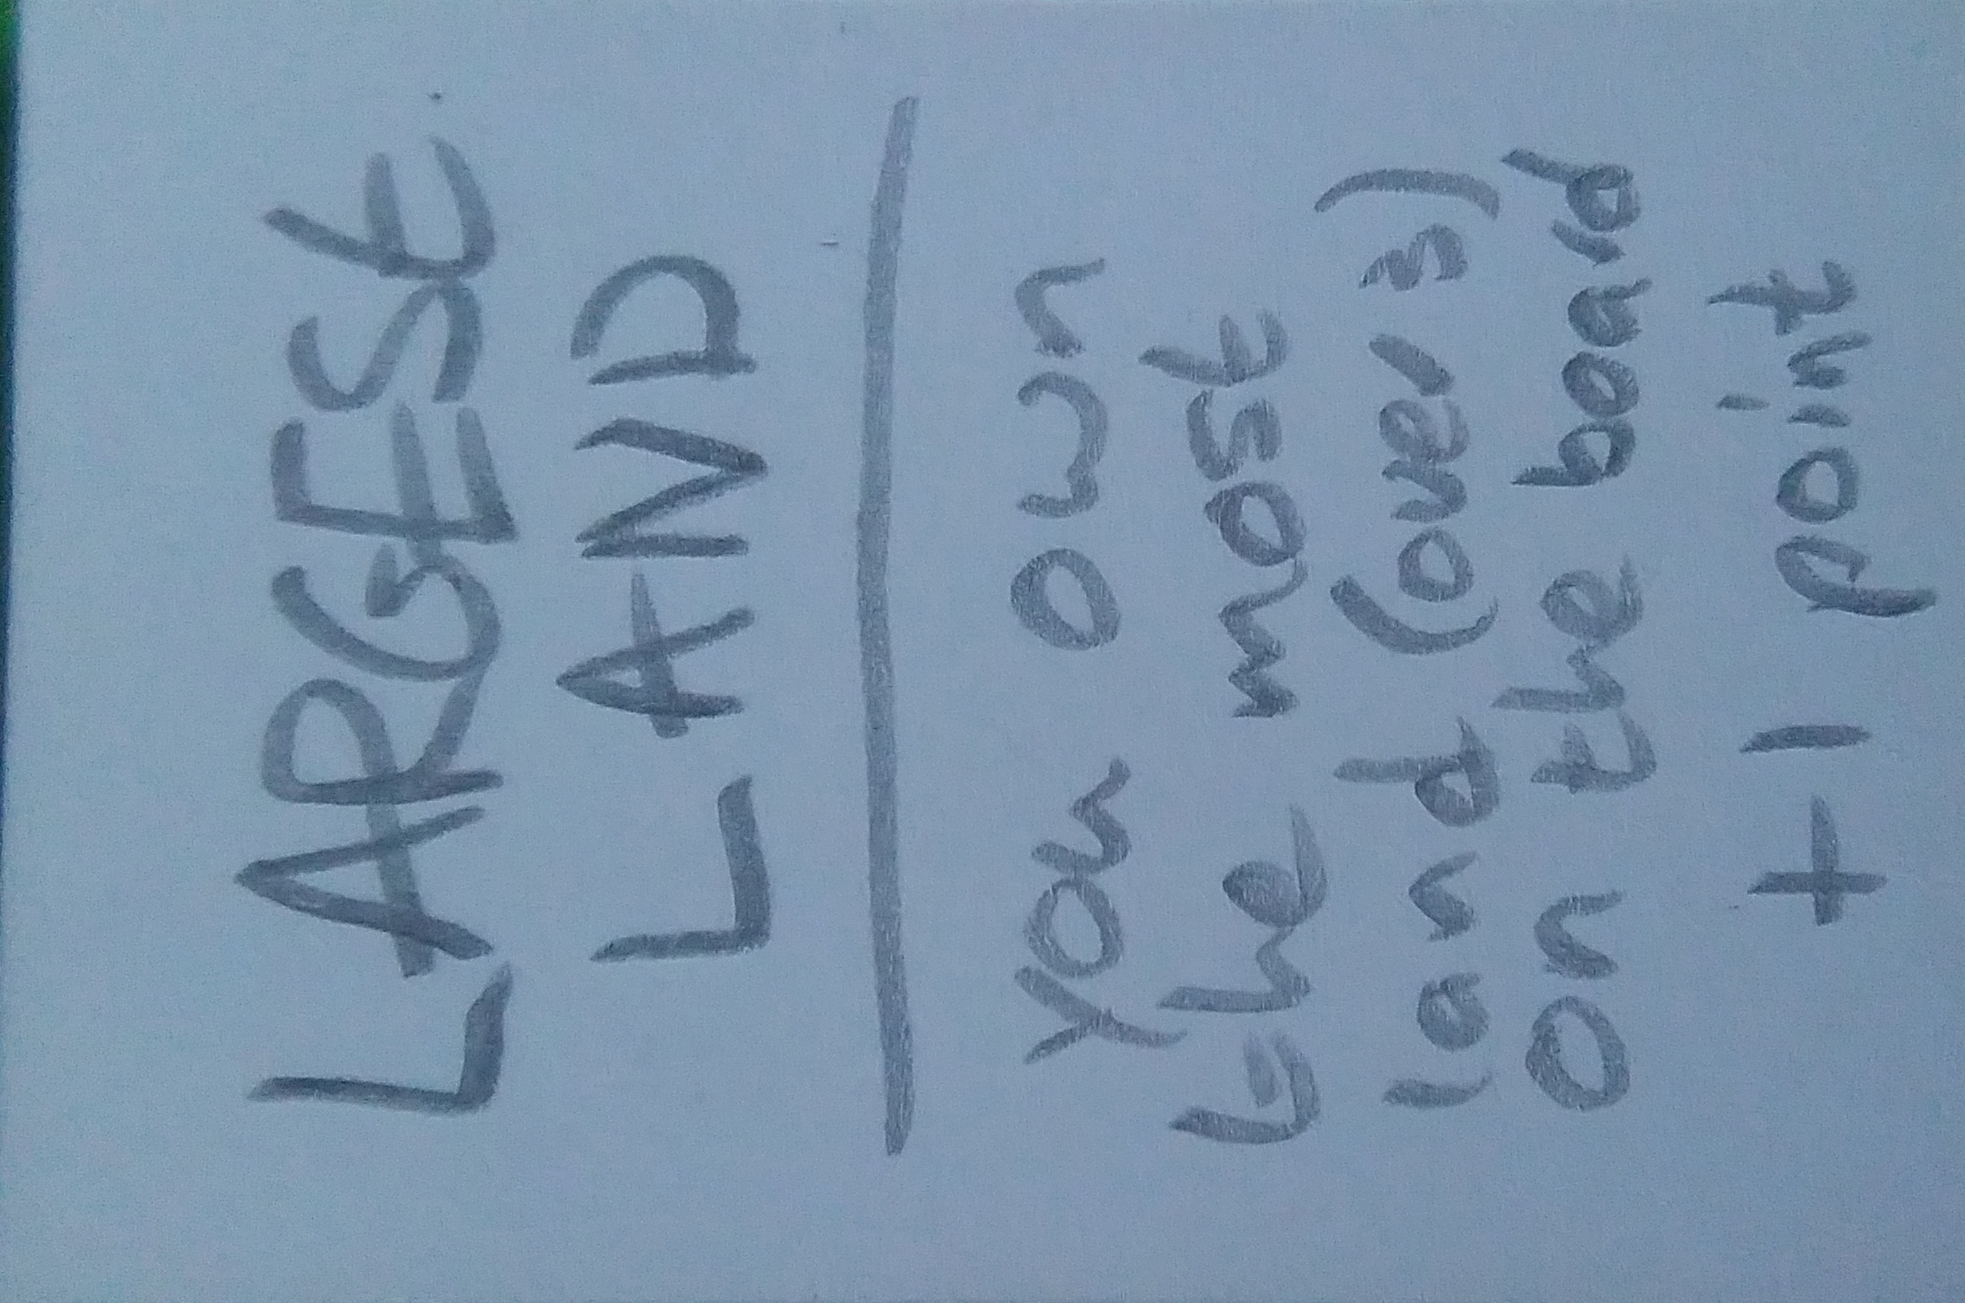 LARGESt
LAND
You own
the most
land (over 3)
on the board
+1 point